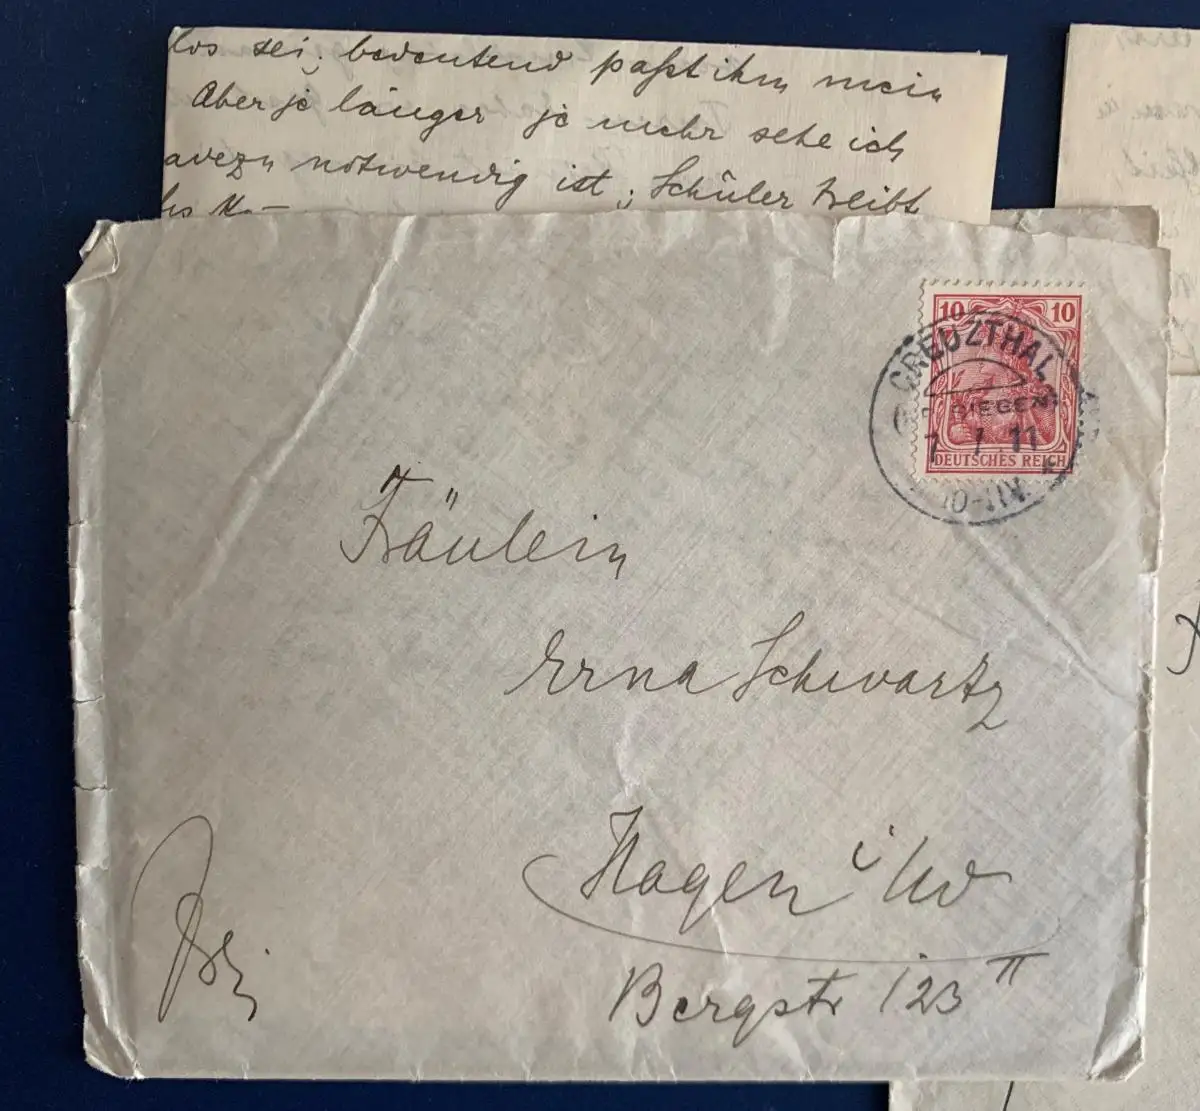 los sei; bedeutend paßt ihm mein
Aber je länger je mehr sehe ich
notwendig ist; Schüler bleibt
10 10
CREUZTHAL
SIEGEN
7.11
DEUTSCHES REICH
Fräulein
Erna Schwartz
Hagen i/W
Bergstr 123 II